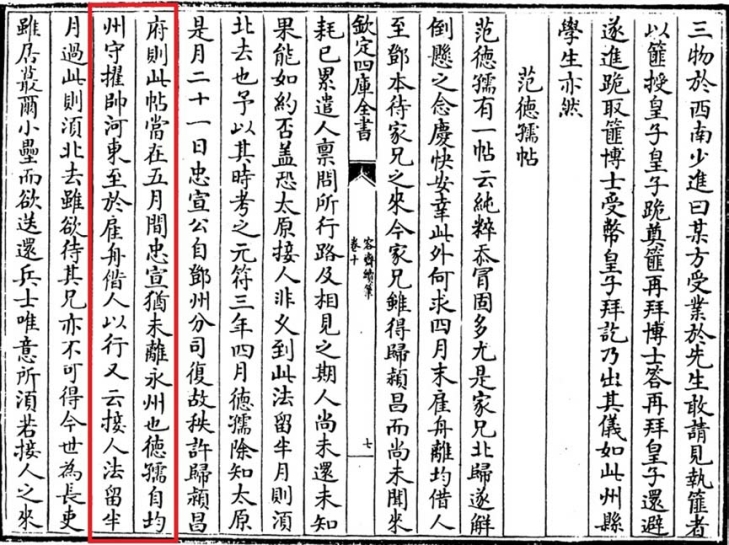 三物於西南少進曰某方受業於先生敢請見執篚者
以篚授皇子皇子跪奠篚再拜博士答再拜皇子還避
遂進跪取篚博士受幣皇子拜訖乃出其儀如此州縣
學生亦然
范德孺帖
范德孺有一帖云純粹忝冒固多尤是家兄北歸遂解
倒懸之念慶快安幸此外何求四月末雇舟離均借人
至鄧本待家兄之來今家兄雖得歸潁昌而尚未聞來
欽定四庫全書
容齋續筆
卷十
七
耗已累遣人禀問所行路及相見之期人尚未還未知
果能如約否蓋恐太原接人非乆到此法留半月則湏
北去也予以其時考之元符三年四月德孺除知太原
是月二十一日忠宣公自鄧州分司復故秩許歸潁昌
府則此帖當在五月間忠宣猶未離永州也德孺自均
州守擢帥河東至於雇舟借人以行又云接人法留半
月過此則湏北去雖欲待其兄亦不可得今世為長吏
雖居蕞爾小壘而欲送還兵士唯意所湏若接人之來